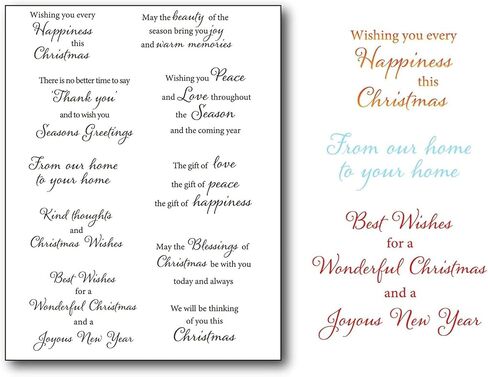 Wishing you every
Happiness
this
Christmas
There is no better time to say
'Thank you'
and to wish you
Seasons Greetings
From our home
to your home
Kind thoughts
and
Christmas Wishes
Best Wishes
for a
Wonderful Christmas
and a
Joyous New Year
May the beauty of the
season bring you joy
and warm memories
Wishing you Peace
and Love throughout
the Season
and the coming year
The gift of love
the gift of peace
the gift of happiness
May the Blessings of
Christmas be with you
today and always
We will be thinking
of you this
Christmas
Wishing you every
Happiness
this
Christmas
From our home
to your home
Best Wishes
for a
Wonderful Christmas
and a
Joyous New Year